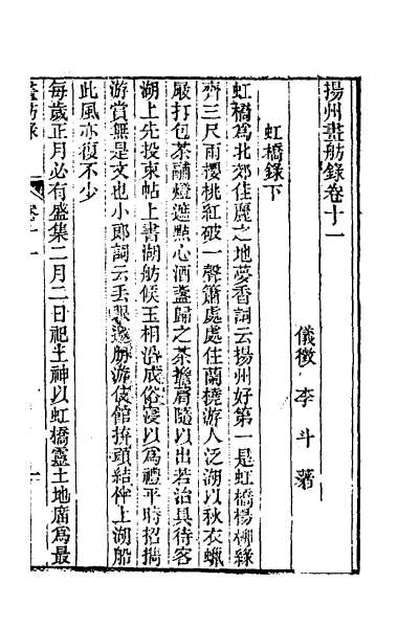 揚州畫舫錄卷十一
儀徵 李斗 著
虹橋錄下
虹橋爲北郊佳麗之地夢香詞云揚州好第一是虹橋楊柳綠
齊三尺雨櫻桃紅破一聲簫處處住蘭橈游人泛湖以秋衣蠟
屐打包茶鐺燈遮點心酒盞歸之茶擔肩隨以出若治具待客
湖上先投柬帖上書湖舫候玉相沿成俗寖以爲禮平時招攜
游賞無是文也小郎詞云丟 邀朋游伎館拚頭結伴上湖船
此風亦復不少
每歲正月必有盛集二月二日祀土神以虹橋靈土地廟爲最